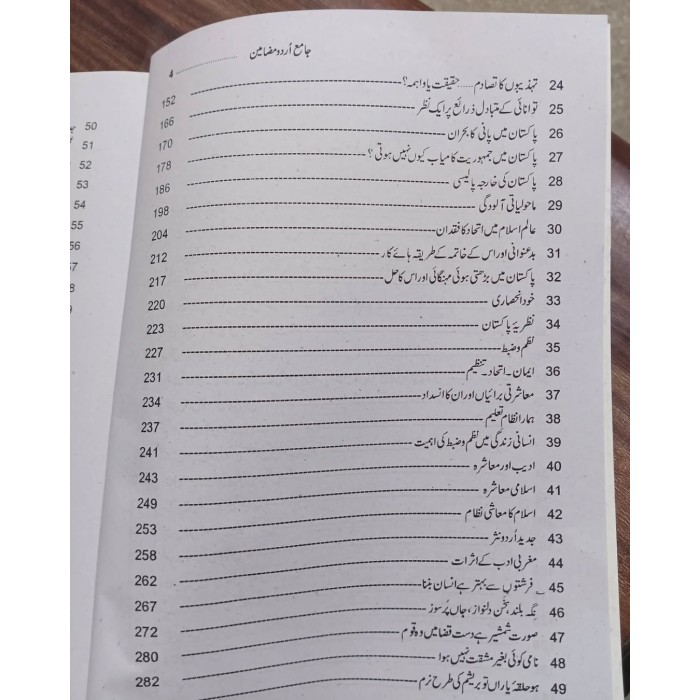 جامع اُردو مضامین ........................ 4
24 تہذیبوں کا تصادم ...... حقیقت یا واہمہ؟ 152
25 توانائی کے متبادل ذرائع پر ایک نظر 166
26 پاکستان میں پانی کا بحران 170
27 پاکستان میں جمہوریت کامیاب کیوں نہیں ہوتی؟ 178
28 پاکستان کی خارجہ پالیسی 186
29 ماحولیاتی آلودگی 198
30 عالم اسلام میں اتحاد کا فقدان 204
31 بدعنوانی اور اس کے خاتمہ کے طریقہ ہائے کار 212
32 پاکستان میں بڑھتی ہوئی مہنگائی اور اس کا حل 217
33 خود انحصاری 220
34 نظریۂ پاکستان 223
35 نظم و ضبط 227
36 ایمان۔ اتحاد۔ تنظیم 231
37 معاشرتی برائیاں اور ان کا انسداد 234
38 ہمارا نظام تعلیم 237
39 انسانی زندگی میں نظم و ضبط کی اہمیت 241
40 ادیب اور معاشرہ 243
41 اسلامی معاشرہ 249
42 اسلام کا معاشی نظام 253
43 جدید اُردو نثر 258
44 مغربی ادب کے اثرات 262
45 فرشتوں سے بہتر ہے انسان بننا 267
46 نگہ بلند، سخن دلنواز، جاں پُرسوز 272
47 صورت شمشیر ہے دست قضا میں وہ قوم 280
48 نامی کوئی بغیر مشقت نہیں ہوا 282
49 ہو حلقۂ یاراں تو بریشم کی طرح نرم
50
51
52
53
54
55
56